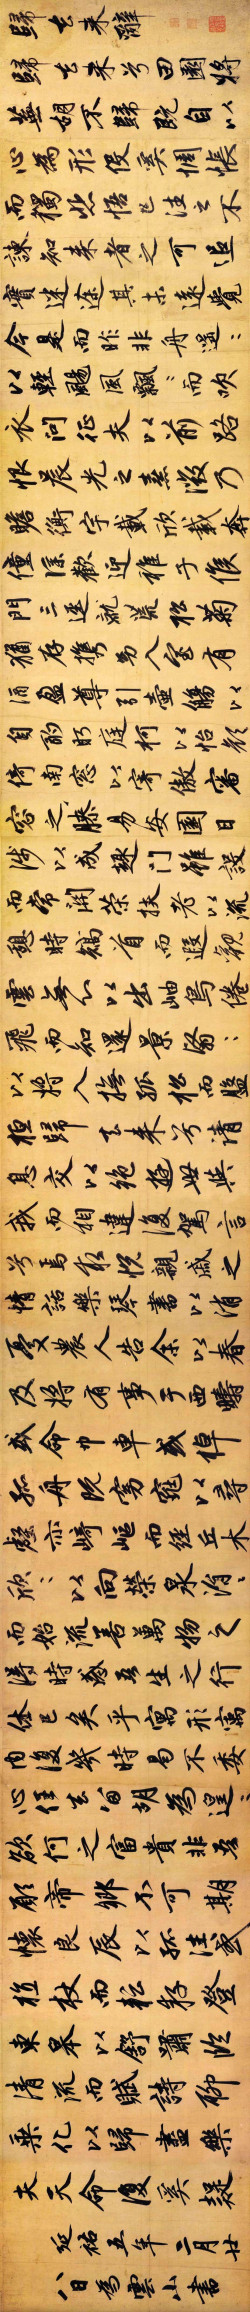 歸去來辭
歸去來兮田園將
蕪胡不歸既自以
心為形役奚惆悵
而獨悲悟已往之不
諫知來者之可追
實迷途其未遠覺
今是而昨非舟遥〻
以輕颺風飄〻而吹
衣問征夫以前路
恨晨光之熹微乃
瞻衡宇載欣載奔
僮僕歡迎稚子候
門三逕就荒松菊
猶存攜幼入室有
酒盈尊引壺觴以
自酌眄庭柯以怡顏
倚南窓以寄傲審
容之膝易安園日
涉以成趣門雖設
而常關策扶老以流
憩時矯首而遐觀
雲無心以出岫鳥倦
飛而知還景翳〻
以將入撫孤松而盤
桓歸去來兮請
息交以絕遊世與
我而相違復駕言
兮焉求悅親戚之
情話樂琴書以消
憂農人告余以春
及將有事于西疇
或命巾車或棹
孤舟既窈窕以尋
壑亦崎嶇而經丘木
欣〻以向榮泉涓〻
而始流善萬物之
得時感吾生之行
休已矣乎寓形寓
內復幾時曷不委
心任去留胡為遑〻
欲何之富貴非吾
願帝鄉不可期
懷良辰以孤往或
植杖而耘耔登
東皋以舒嘯臨
清流而賦詩聊
乘化以歸盡樂
夫天命復奚疑
延祐五年二月廿
八日為雲山書